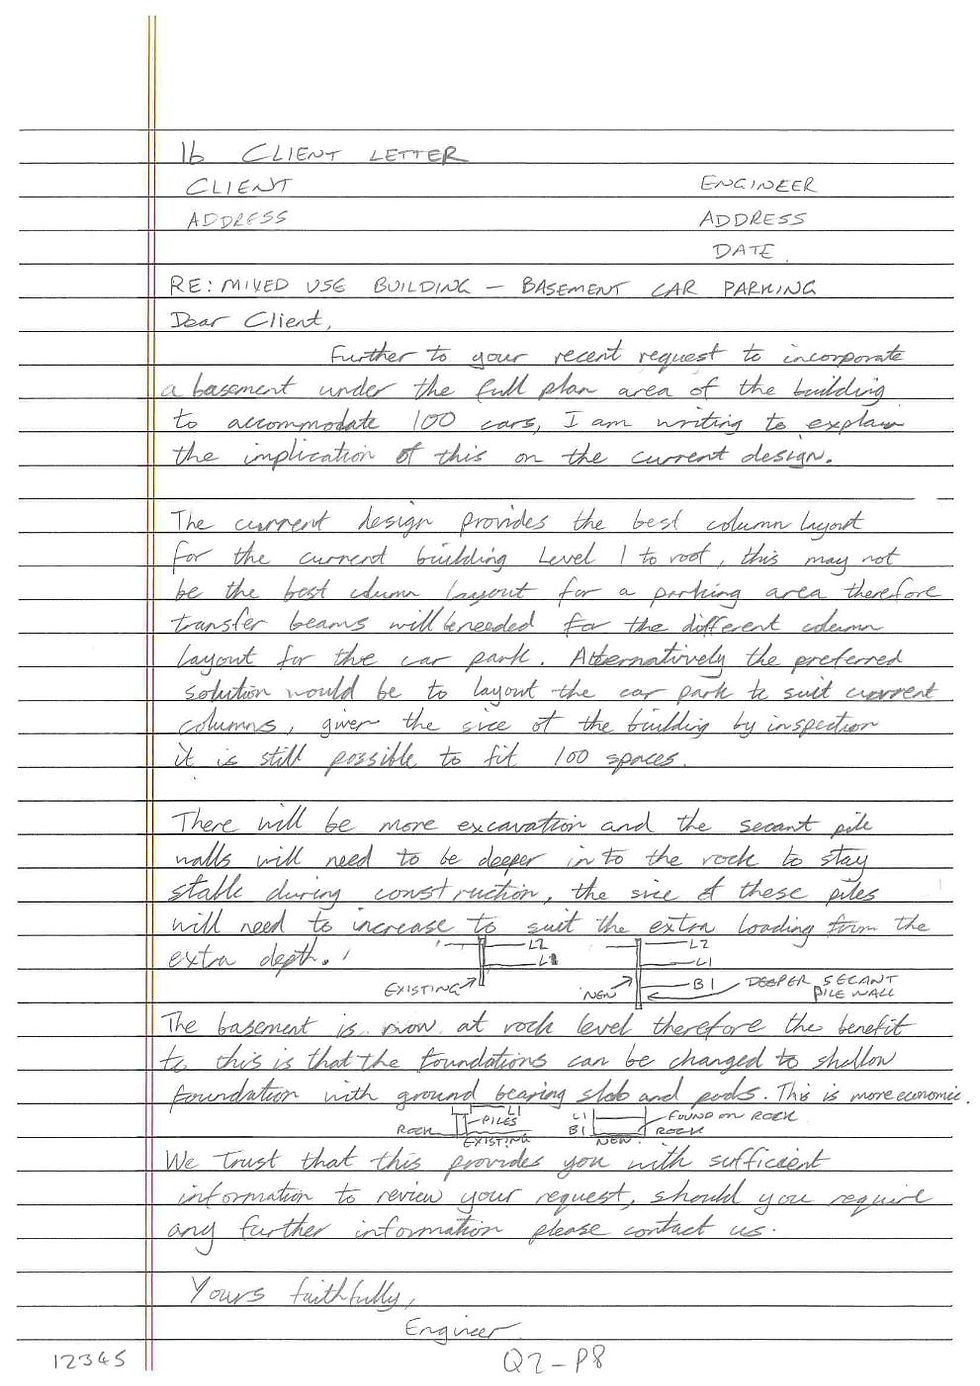 1b CLIENT LETTER
CLIENT ENGINEER
ADDRESS ADDRESS
DATE.
RE: MIXED USE BUILDING - BASEMENT CAR PARKING
Dear Client,
Further to your recent request to incorporate
a basement under the full plan area of the building
to accommodate 100 cars, I am writing to explain
the implication of this on the current design.
The current design provides the best column layout
for the current building Level 1 to roof, this may not
be the best column layout for a parking area therefore
transfer beams will be needed for the different column
layout for the car park. Alternatively the preferred
solution would be to layout the car park to suit current
columns, given the size of the building by inspection
it is still possible to fit 100 spaces.
There will be more excavation and the secant pile
walls will need to be deeper in to the rock to stay
stable during construction, the size of these piles
will need to increase to suit the extra loading from the
extra depth.
L2 L2
L1 L1
EXISTING NEW B1 DEEPER SECANT
PILE WALL
The basement is now at rock level therefore the benefit
to this is that the foundations can be changed to shallow
foundation with ground bearing slab and pads. This is more economic.
L1 L1 FOUND ON ROCK
ROCK PILES B1 ROCK
EXISTING NEW
We Trust that this provides you with sufficient
information to review your request, should you require
any further information please contact us.
Yours faithfully,
Engineer
12345 Q2-P8